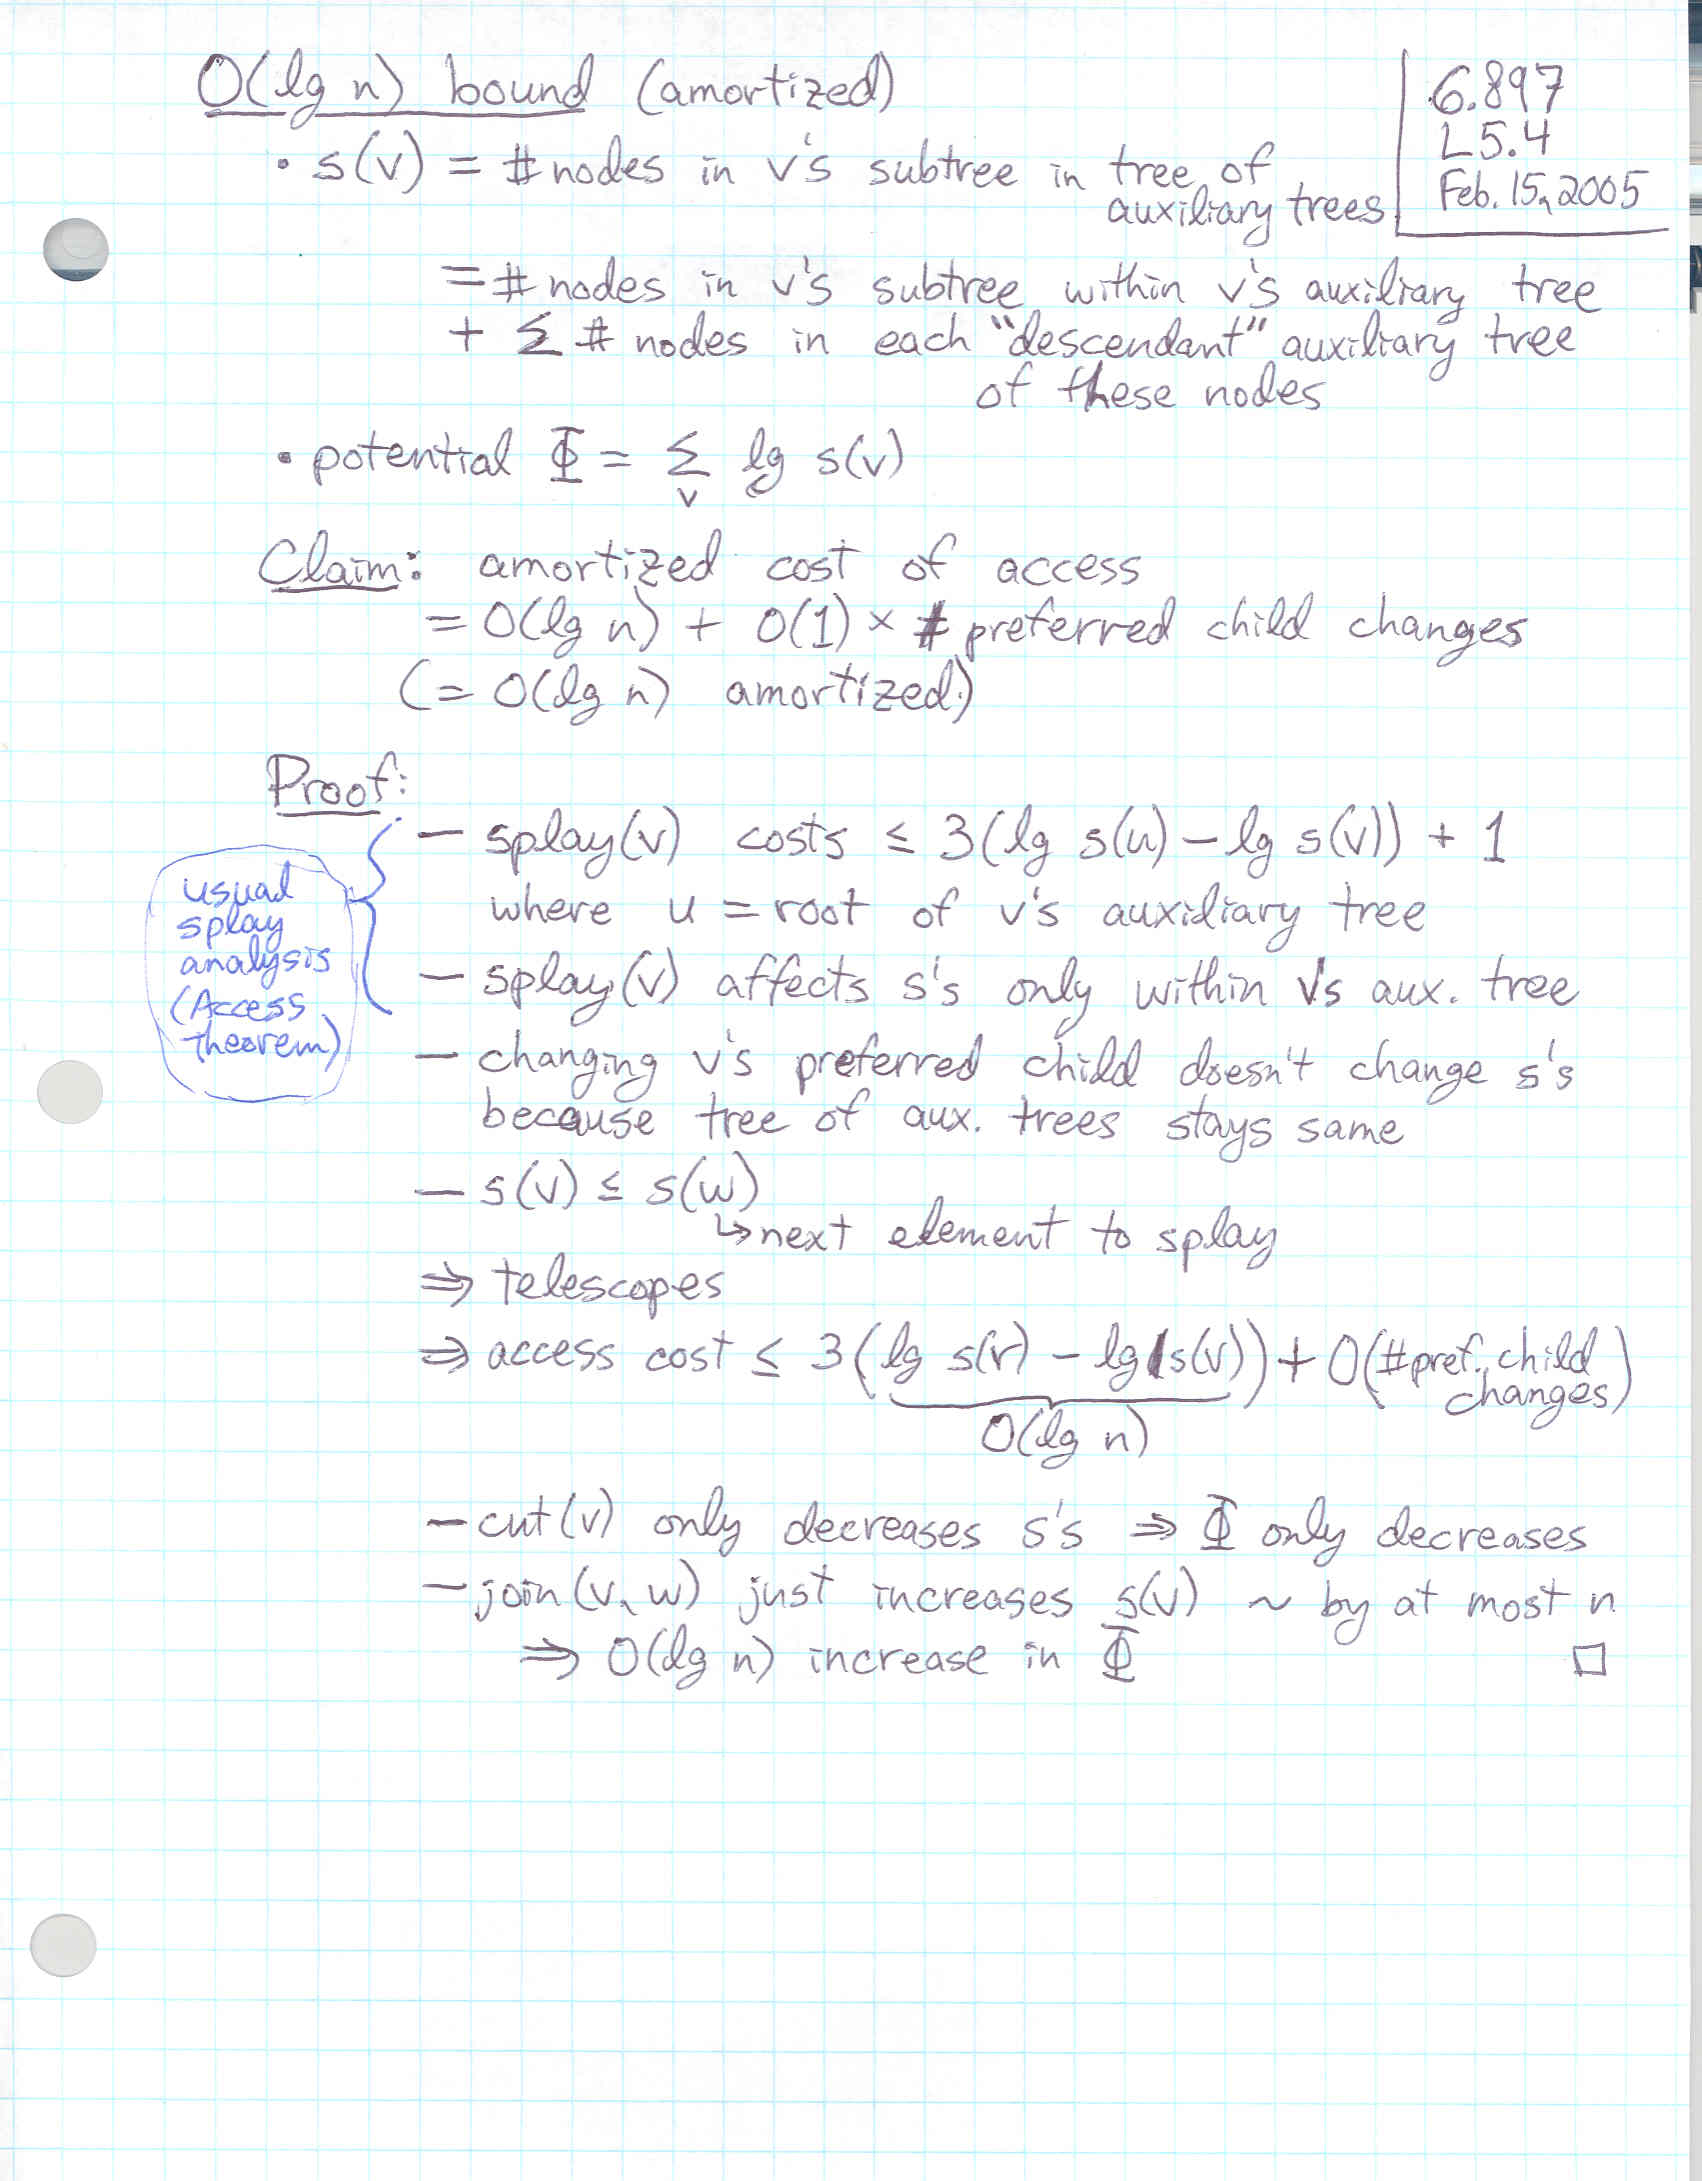 O(lg n) bound (amortized)
6.897
L5.4
Feb. 15, 2005
• s(v) = # nodes in v's subtree in tree of
auxiliary trees
= # nodes in v's subtree within v's auxiliary tree
+ Σ # nodes in each "descendant" auxiliary tree
of these nodes
• potential Φ = Σ lg s(v)
v
Claim: amortized cost of access
= O(lg n) + O(1) × # preferred child changes
(= O(lg n) amortized)
Proof:
— splay(v) costs ≤ 3(lg s(u) – lg s(v)) + 1
where u = root of v's auxiliary tree
— splay(v) affects s's only within v's aux. tree
usual
splay
analysis
(Access
Theorem)
— changing v's preferred child doesn't change s's
because tree of aux. trees stays same
— s(v) ≤ s(w)
↳ next element to splay
⇒ telescopes
⇒ access cost ≤ 3(lg s(r) – lg s(v)) + O(#pref. child
changes)
O(lg n)
— cut(v) only decreases s's ⇒ Φ only decreases
— join(v, w) just increases s(v) ~ by at most n
⇒ O(lg n) increase in Φ □